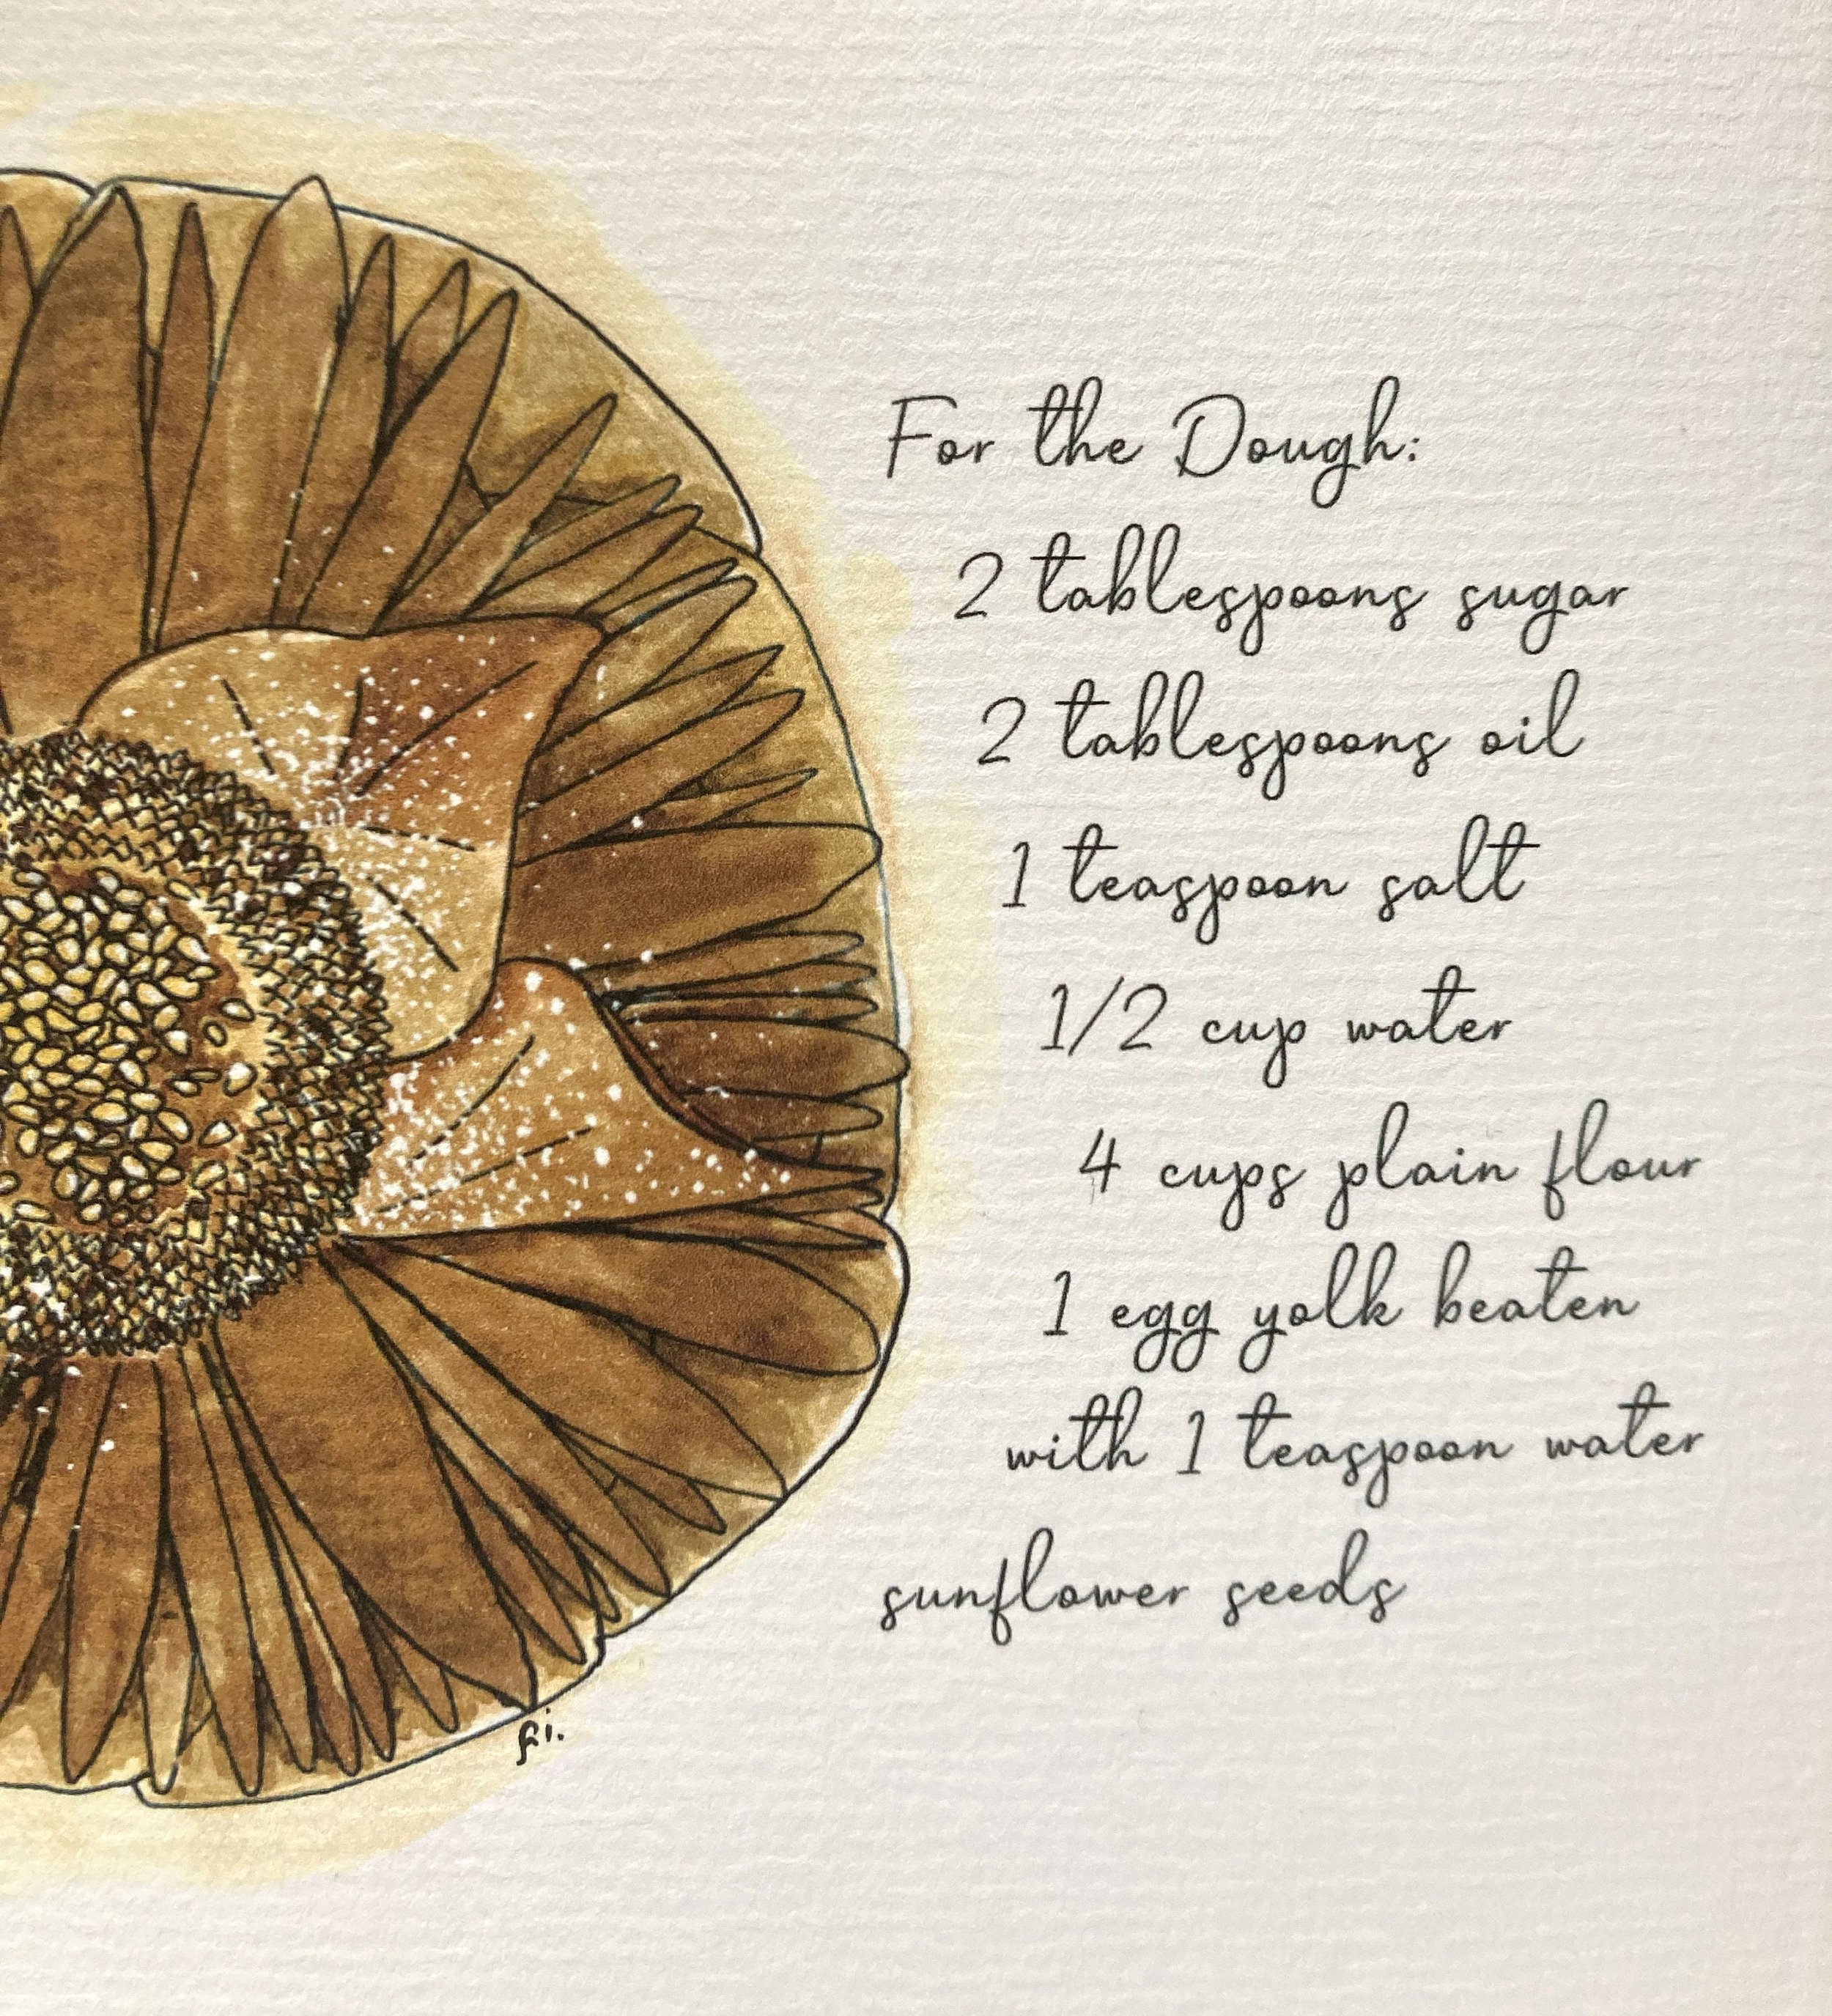 For the Dough:
2 tablespoons sugar
2 tablespoons oil
1 teaspoon salt
1/2 cup water
4 cups plain flour
1 egg yolk beaten
with 1 teaspoon water
sunflower seeds